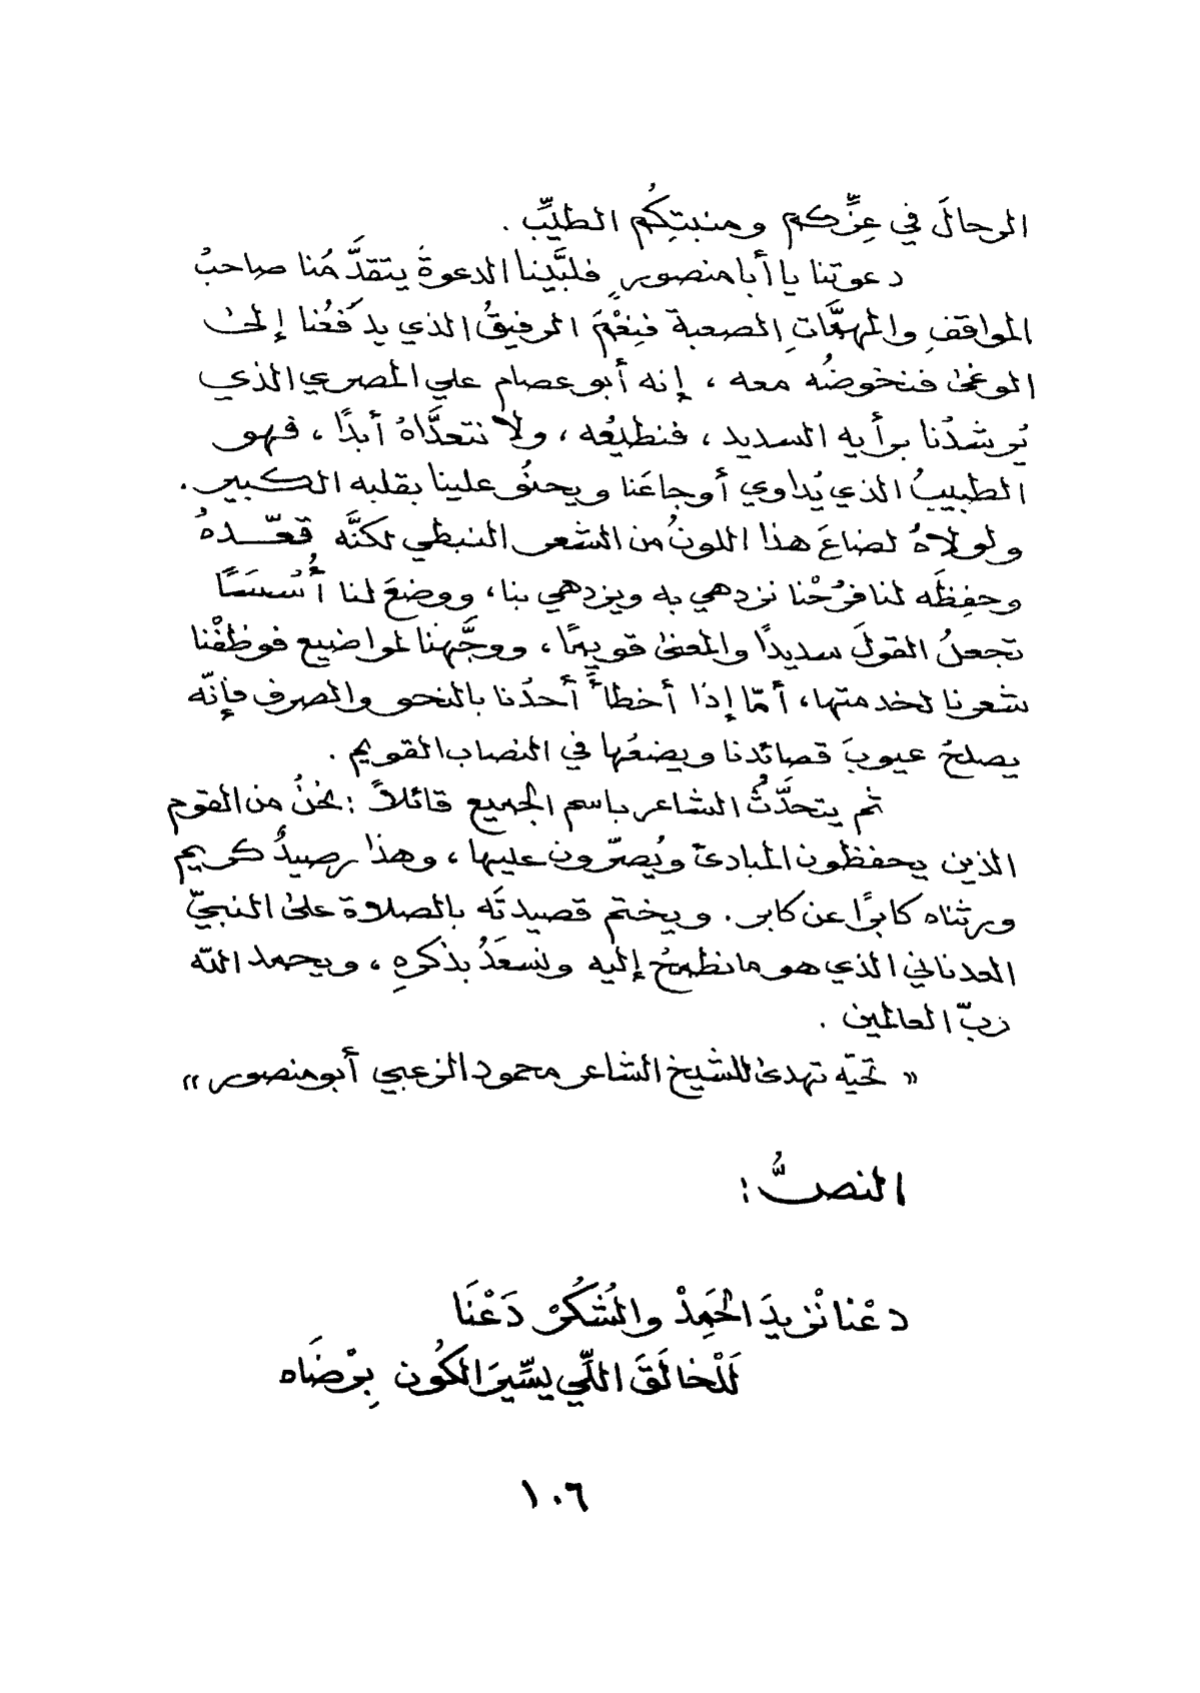 الرحالَ في عِزِّكم ومنبتِكُم الطيِّب .
دعوتنا يا أبا منصورٍ فلبَّينا الدعوةَ يتقدَّمُنا صاحبُ
المواقفِ والمهمَّاتِ الصعبة فنِعْمَ الرفيقُ الذي يدفَعُنا إلى
الوغى فنخوضُه معه ، إنه أبو عصام علي المصري الذي
يُرشدُنا برأيه السديد ، فنطيعُه ، ولا نتعدَّاهُ أبدًا ، فهو
الطبيبُ الذي يُداوي أوجاعَنا ويحنُو علينا بقلبه الكبير .
ولولاهُ لضاعَ هذا اللونُ من الشعر النبطي لكنَّه قعّدهُ
وحفِظَه لنا فرُحْنا نزدهي به ويزدهي بنا ، ووضعَ لنا أُسُسًا
تجعلُ القولَ سديدًا والمعنى قويمًا ، ووجَّهَنا لمواضيع فوظفْنا
شعرنا لخدمتها ، أمّا إذا أخطأَ أحدُنا بالنحو والصرف فإنّه
يصلحُ عيوبَ قصائدنا ويضعُها في النصاب القويم .
ثم يتحدَّثُ الشاعر باسم الجميع قائلاً : نحنُ من القوم
الذين يحفظون المبادئ ويُصرّون عليها ، وهذا رصيدٌ كريم
ورثناه كابرًا عن كابر . ويختم قصيدتَه بالصلاة على النبيّ
العدناني الذي هو ما نطمحُ إليه ونسعَدُ بذكرهِ ، ويحمد الله
ربّ العالمين .
« تحيّه تهدى للشيخ الشاعر محمود الزعبي أبو منصور »
النصُّ :
دعْنا نْزيدَ الحَمِدْ والشُكُرْ دَعْنَا
لَلْخالَقَ اللّي يسِّيرَ الكُون بِرْضَاه
١٠٦